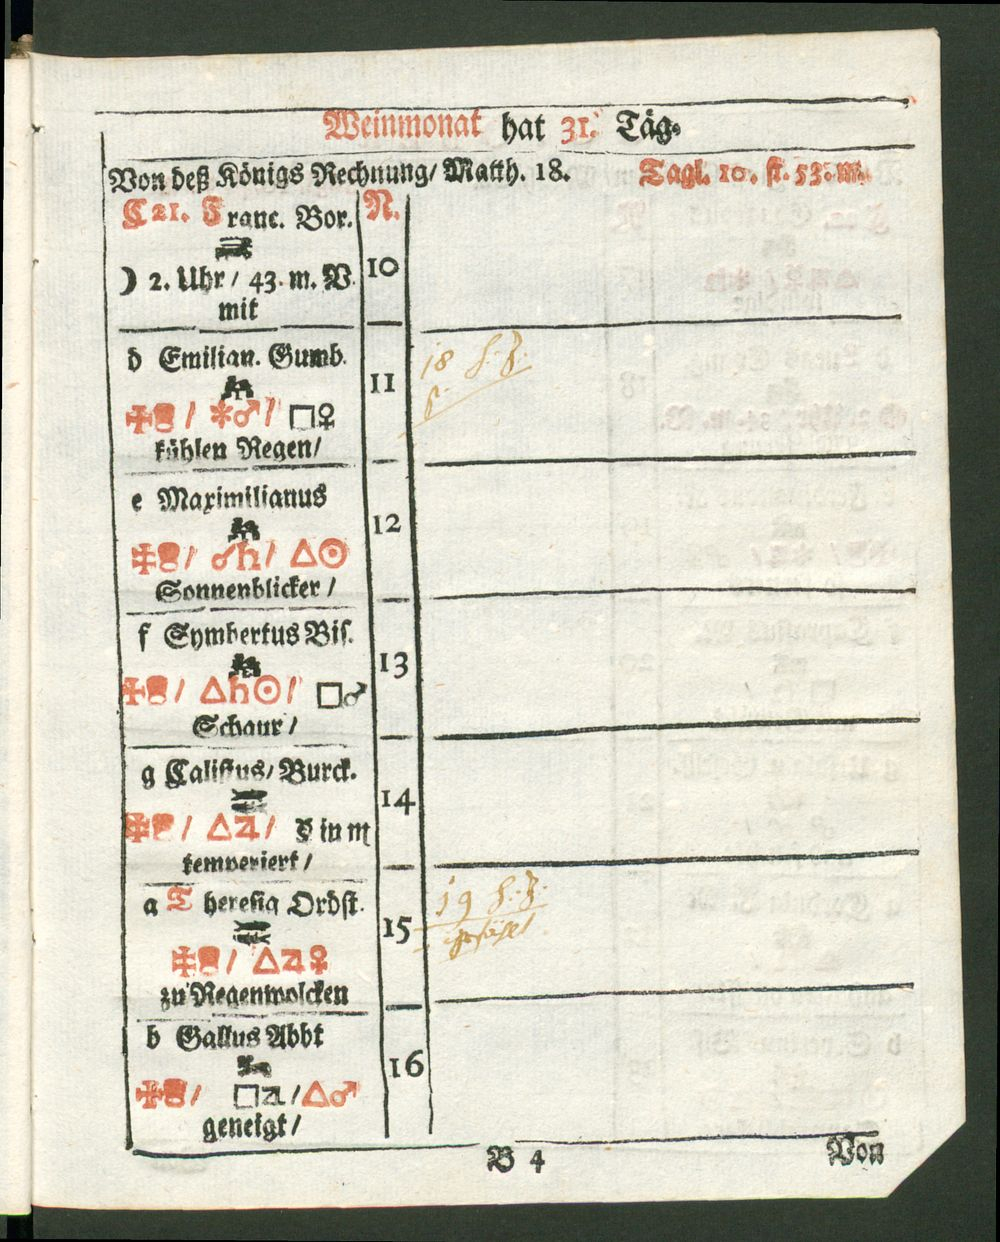 Weinmonat hat 31. Täg.
Von deß Königs Rechnung/ Matth. 18. Tagl. 10. st. 53. m.
C 21. Franc. Bor. N.
☽ 2. Uhr / 43. m. V. 10
mit
d Emilian. Gumb. 11
/ ✱♂ / □♀
kühlen Regen/
18
e Maximilianus 12
/ ☌♄ / △☉
Sonnenblicker /
f Symbertus Bis. 13
/ △♄☉ / □♂
Schaur /
g Calistus/ Burck. 14
/ △♃ / in ♏
temperiert /
a Theresia Ordst. 15
/ △♃♀
zu Regenwolcken
19
b Gallus Abbt 16
/ □♃ / △♂
geneigt /
B 4 Von